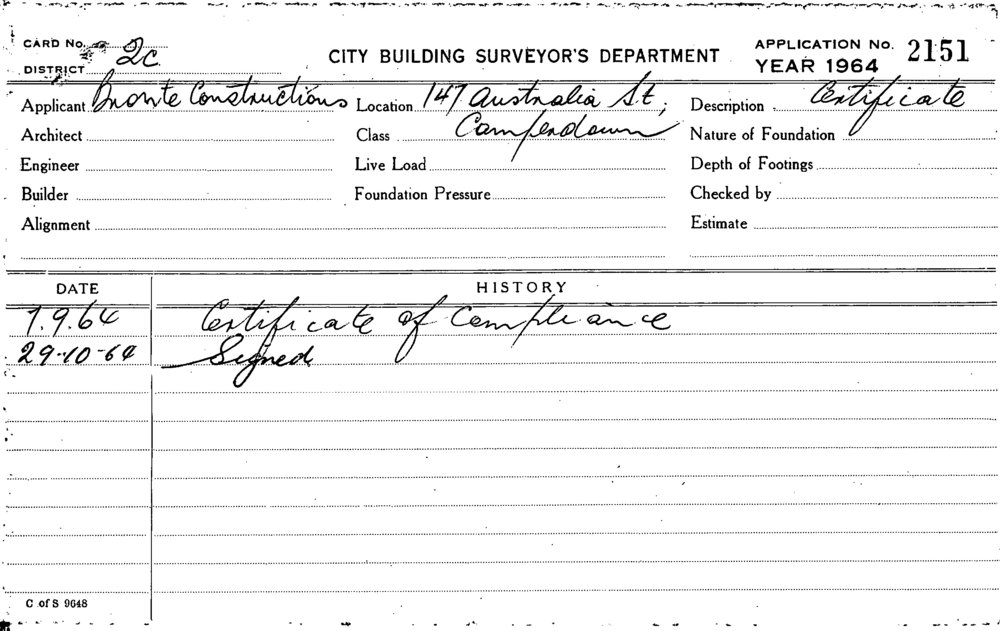 CARD No. 2c CITY BUILDING SURVEYOR'S DEPARTMENT APPLICATION No. 2151
DISTRICT YEAR 1964
Applicant Bronte Constructions Location 147 Australia St, Description Certificate
Architect Class Camperdown Nature of Foundation
Engineer Live Load Depth of Footings
Builder Foundation Pressure Checked by
Alignment Estimate
DATE HISTORY
7.9.64 Certificate of Compliance
29-10-64 Signed
C of S 9648